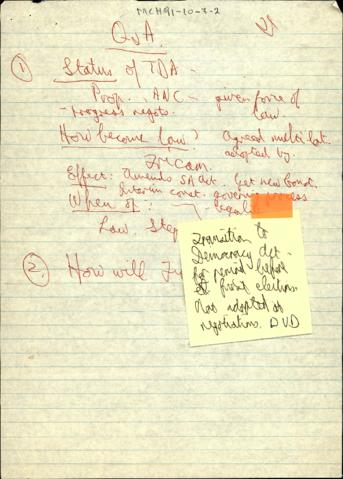 MCH91-10-7-2
Q&A.
① Status of TDA -
Prop. ANC - given force of
- progress negots. law
How become law? agreed multilat.
adopted by.
Tricam.
Effect: Amends SA Act. Get new const.
Interim const. governs process
When of:
Law. Step
② How will
Transition to
Democracy Act -
for period before
first election
Not adopted as
negotiations. DVD